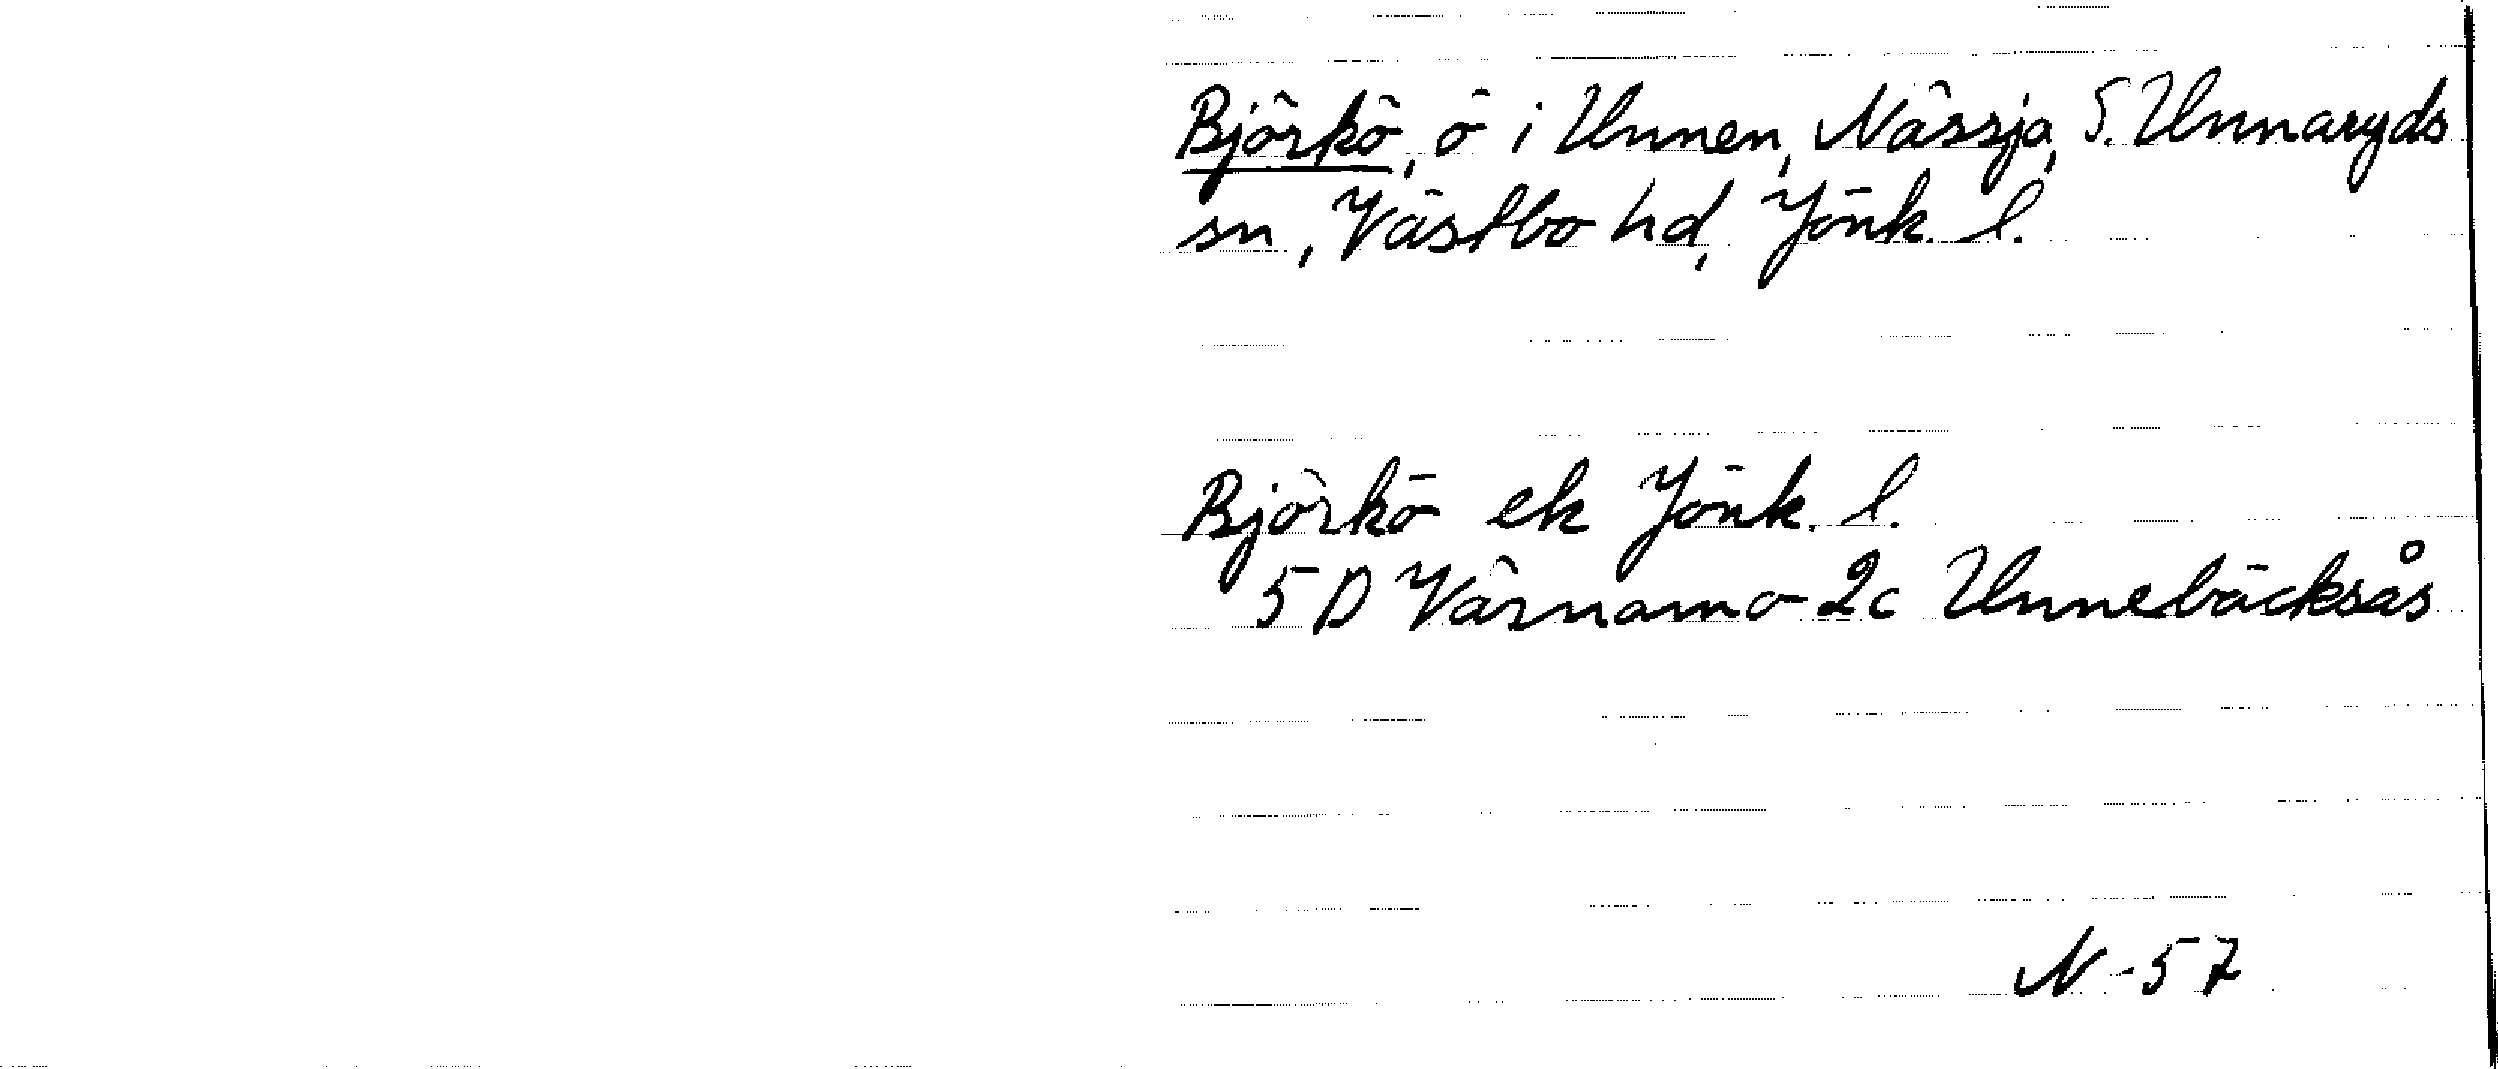 Björkö, ö i Unnen, Nässja, S. Unnaryds
sn, Västbo hd, Jönk. l.
Björkö ek Jönk. l.
5 D Värnamo 2c Unnebäcksås
N -57